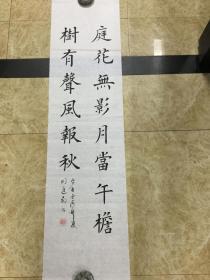 庭花無影月當午檐
樹有聲風報秋